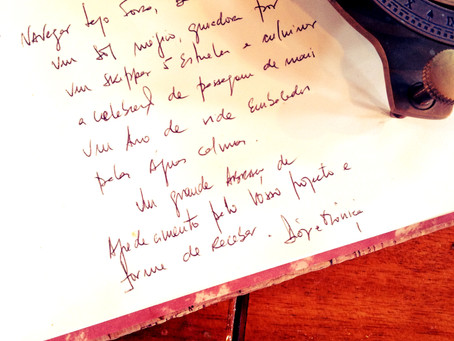 Navegar tejo
um Sol mágico, guiados por
um skipper 5 Estrelas e culminar
a celebrar a passagem de mais
um Ano de vida Embalados
pelas Águas calmas.
Um grande Abraço, de
Agradecimento pelo Vosso projecto e
forma de Receber.
X A D